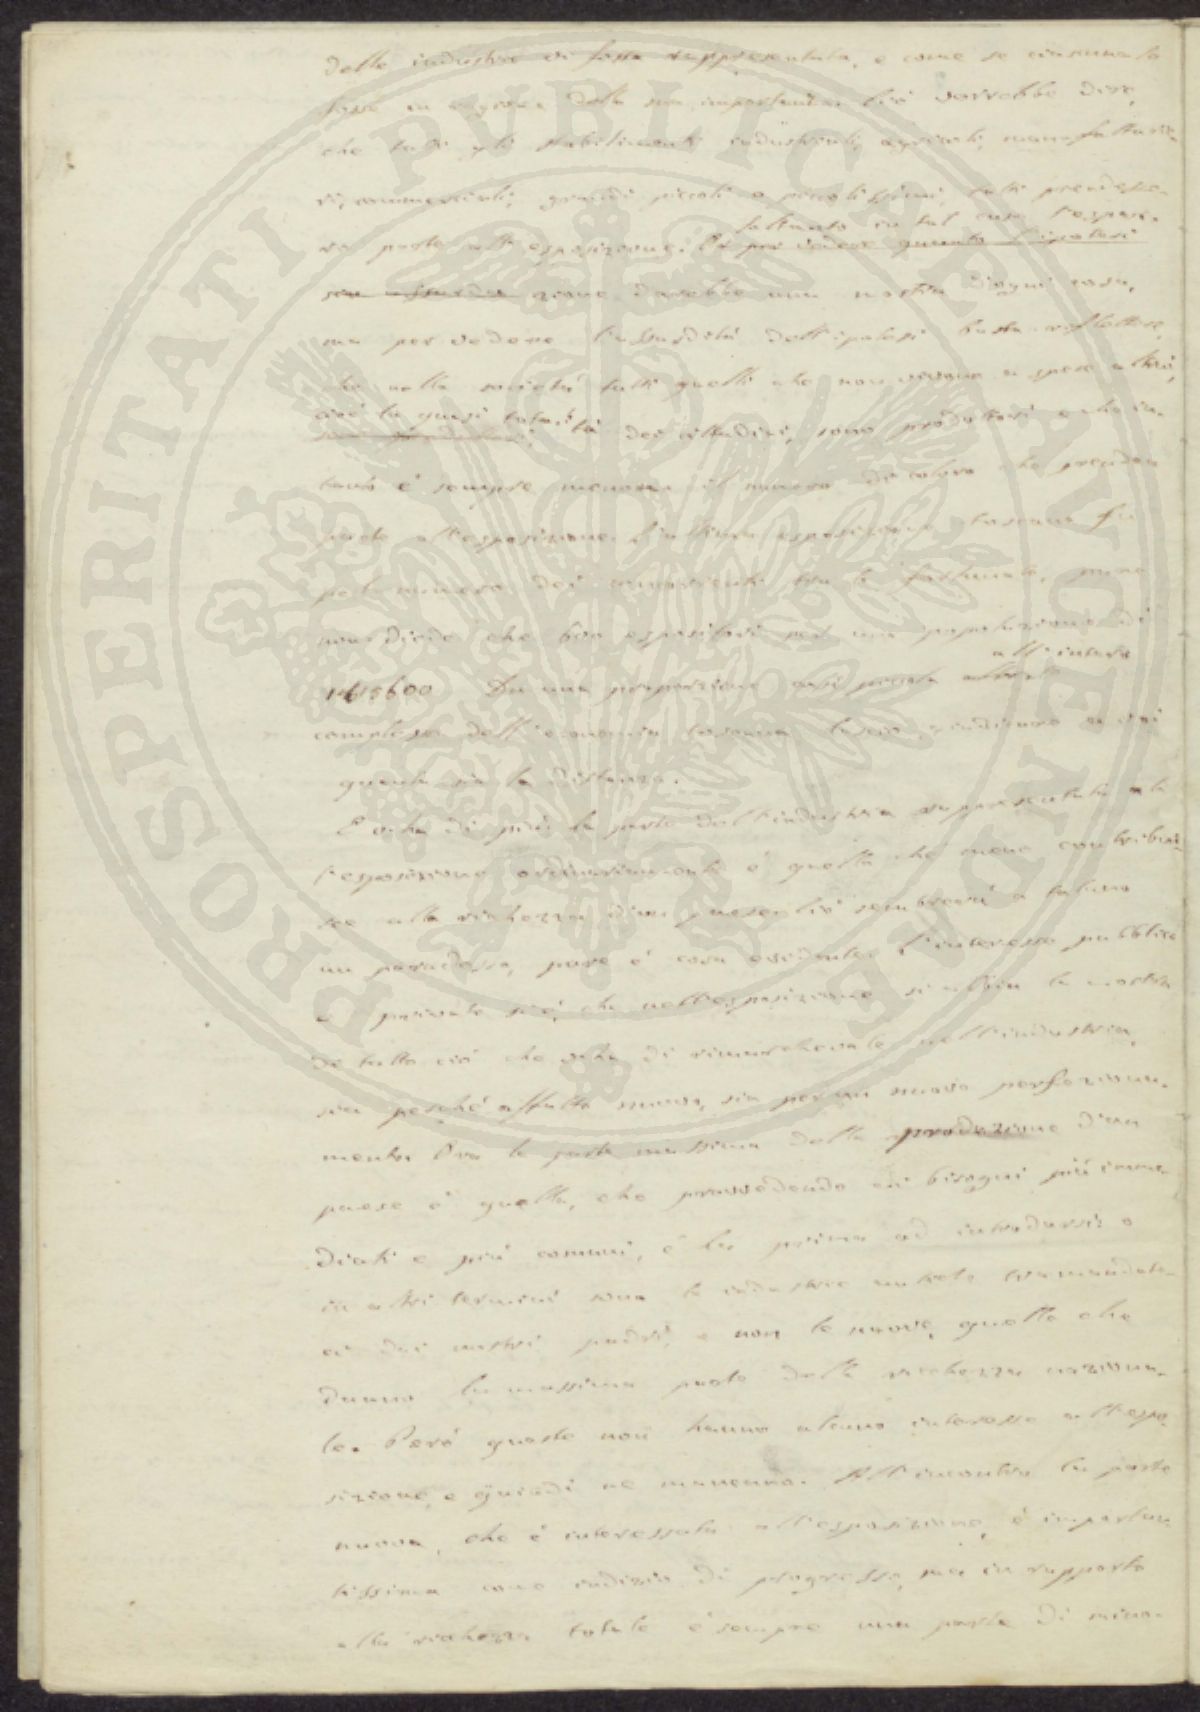 delle industrie vi fosse rappresentata, e come se ciascuna lo
fosse in ragione della sua importanza. Ciò vorrebbe dire,
che tutti gli stabilimenti industriali, agricoli, manifatturie-
ri, commerciali, grandi piccoli e piccolissimi, tutti prendesse-
soltanto in tal caso l'esposi-
ro parte all'esposizione. Or per vedere quanto l'ipotesi
sia assurda zione darebbe una mostra d'ogni cosa,
ma per vedere l'assurdità dell'ipotesi basta riflettere,
che nella società tutti quelli che non vivono a spese altrui,
cioè la quasi totalità dei cittadini, sono produttori e che in-
tanto è sempre menoma il numero di coloro che prendon
parte all'esposizione. L'ultima esposizione toscana fu
pel numero dei concorrenti tra le fortunate, pure
non diede che espositori per una popolazione di
all'intero
Da una proporzione così piccola
complesso dell'economia toscana lascio giudicare a voi
quanta sia la distanza.
E v'ha di più: la parte dell'industria rappresentata al-
l'esposizione ordinariamente è quella che meno contribui-
sce alla ricchezza d'un paese. Ciò sembrerà a taluno
un paradosso, pure è cosa evidente. L'interesse pubblico
e privato si è, che nell'esposizione si abbia la mostra
di tutto ciò che v'ha di rimarchevole nell'industria,
sia perché affatto nuovo, sia per un nuovo perfeziona-
mento. Ora la parte massima della produzione d'un
paese è quella, che provvedendo ai bisogni più imme-
diati e più comuni, è la prima ad introdursi: o
in altri termini sono le industrie antiche tramandate-
ci dai nostri padri, e non le nuove, quelle che
danno la massima parte della ricchezza naziona-
le. Però queste non hanno alcuno interesse all'espo-
sizione, e quindi ne mancano. All'incontro la parte
nuova, che è interessata all'esposizione, è importan-
tissima come indizio di progresso, ma in rapporto
alla ricchezza totale è sempre una parte di mino-
PROSPERITATI PUBLICAE AUGENDAE